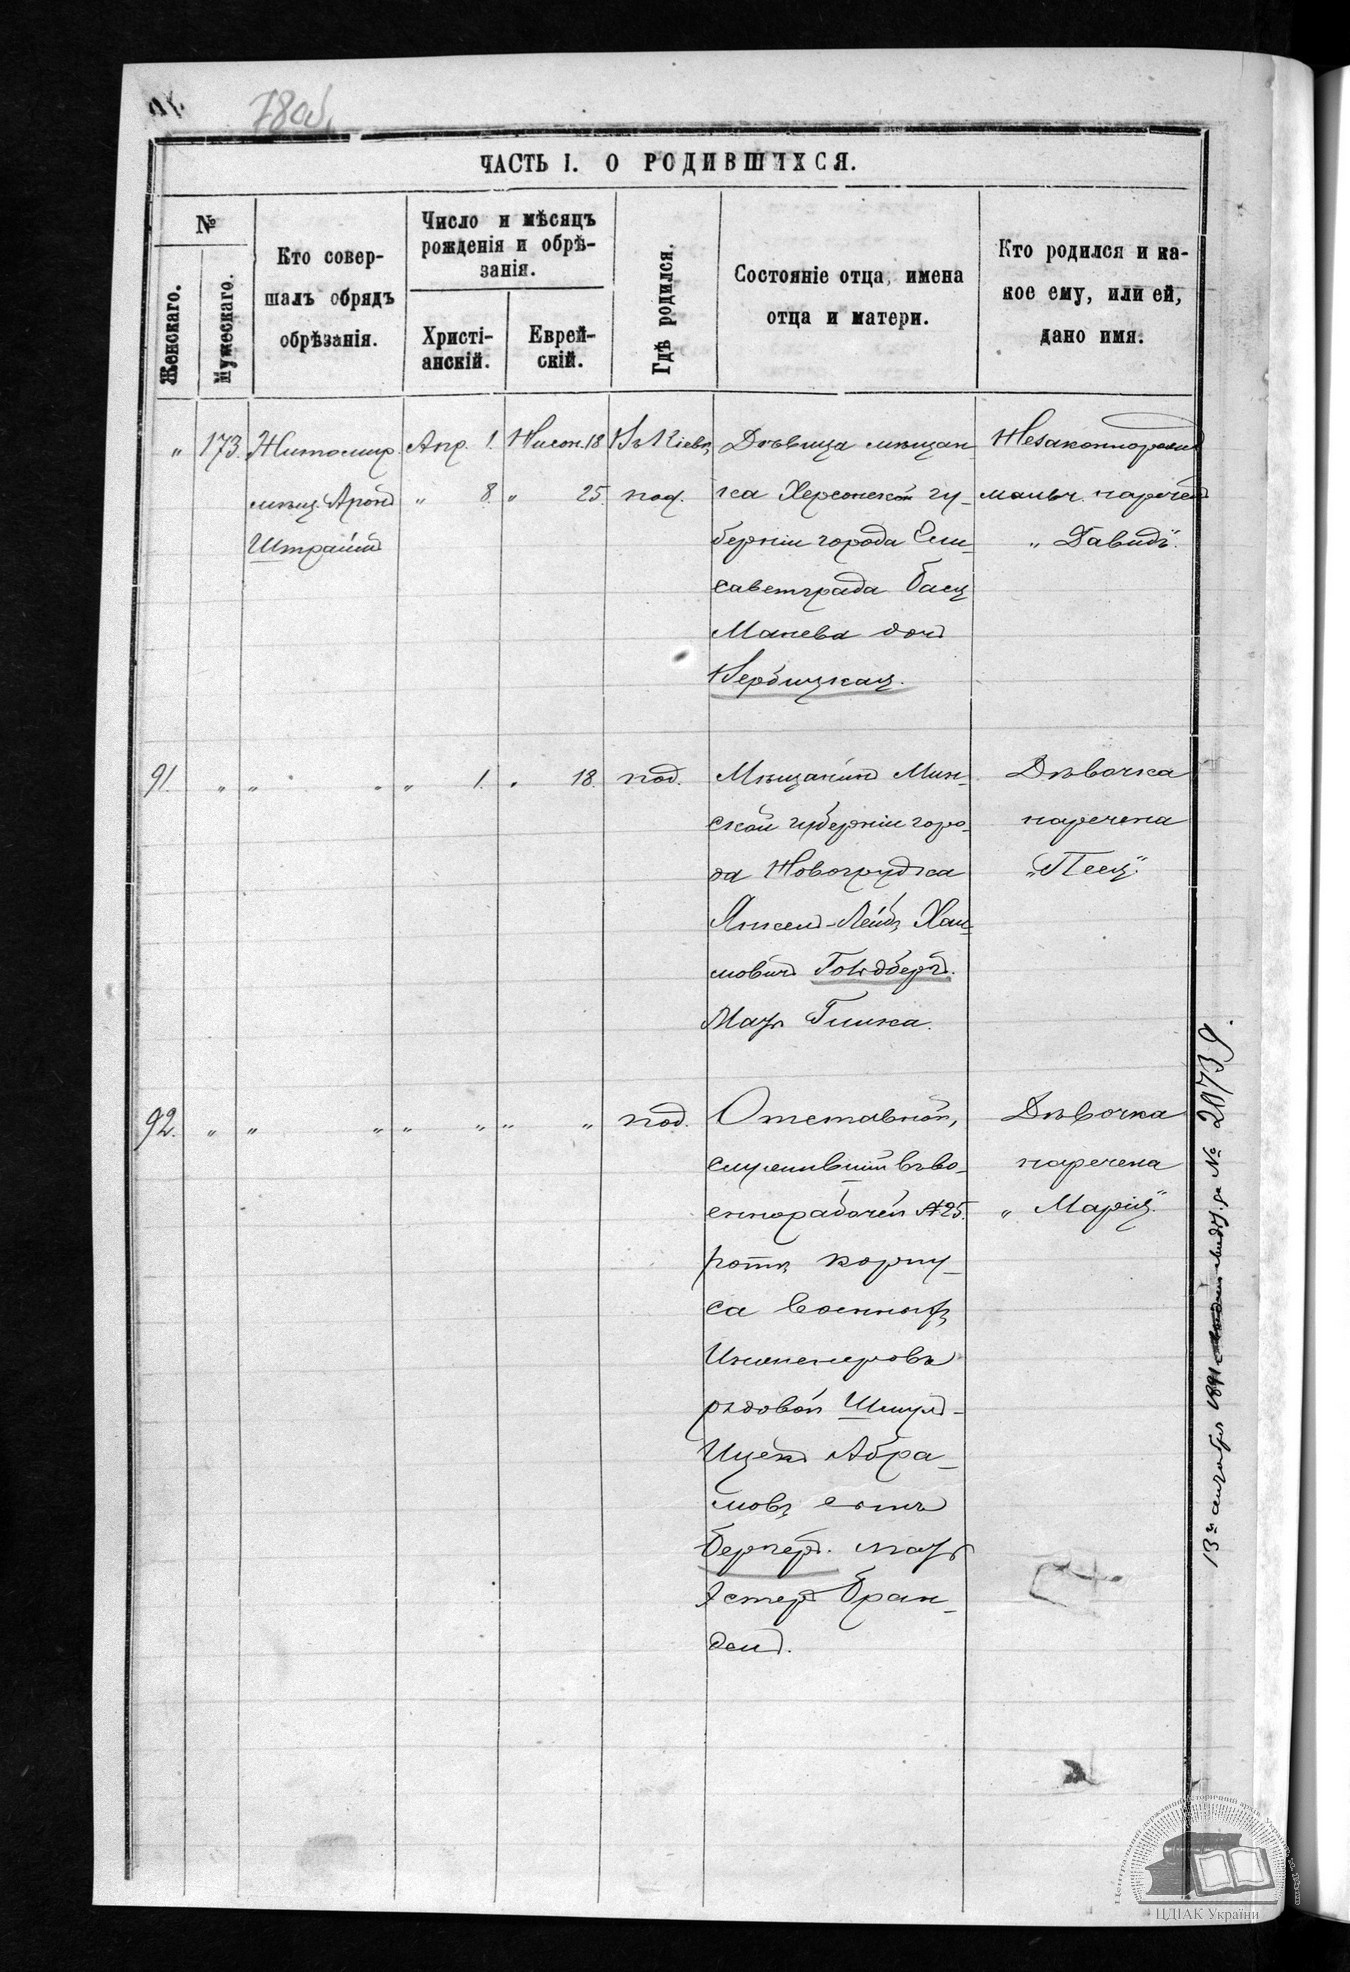 78 об.
ЧАСТЬ I. О РОДИВШИХСЯ.
№
Женскаго.
Мужескаго.
Кто совер-
шалъ обрядъ
обрѣзанія.
Число и мѣсяцъ
рожденія и обрѣ-
занія.
Христі-
анскій.
Еврей-
скій.
Гдѣ родился.
Состояніе отца, имена
отца и матери.
Кто родился и ка-
кое ему, или ей,
дано имя.
" 173. Житомир.
мѣщ. Аронъ
Апр. 1.
" 8.
Нисон. 18
" 25.
Въ Кіевѣ
под.
Дѣвица мѣщан-
ка Херсонской гу-
берніи города Ели-
саветграда Бася
Манева дочь
Вербицкая.
Незаконнорожд
мальч. наречен
„Давидъ".
91. " " " " 1. " 18. под.
Мѣщанинъ Мин-
ской губерніи горо-
да Новогрудка
Янкель-Лейбъ Хаи-
мовичъ Гольдбергъ.
Мать Гишка.
Дѣвочка
наречена
„Песя".
92. " " " " " " " под.
Отставной,
служившій въ во-
еннорабочей № 25.
ротѣ корпу-
са Военныхъ
Инженеровъ
рядовой Шмуль-
Ицекъ Абра-
мовъ сынъ
Бергеръ. мать
Эстеръ Бран-
дель.
Дѣвочка
наречена
„Марія".
13го сентября 1891 выдан свидѣт. за № 20739.
ЦДІАК України